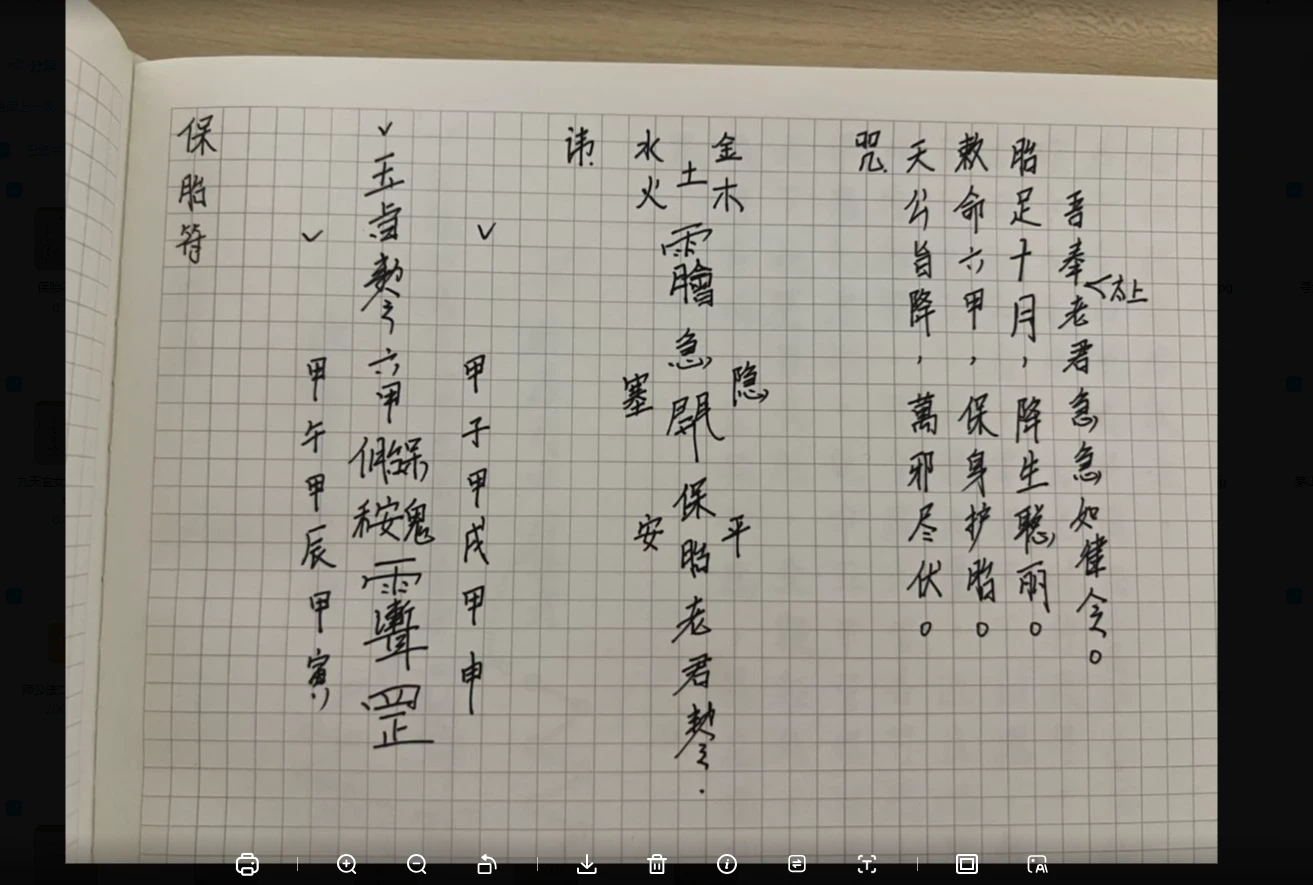 保胎符
甲午甲辰甲寅
玉
六甲
罡
甲子甲戌甲申
讳
水火
土
金木
急
保胎老君
塞
安
隐
平
咒
天公旨降，萬邪尽伏。
敕命六甲，保身护胎。
胎足十月，降生聪丽。
吾奉老君急急如律令。
太上